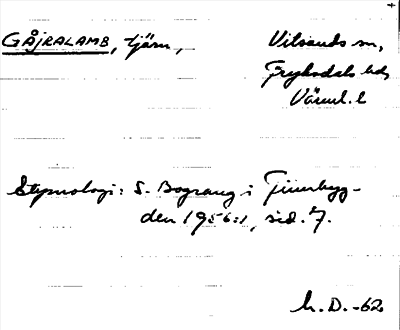 GÅJRALAMB, tjärn, Vitsands sn,
Fryksdals hd,
Värml. l
Etymologi: S. Bograng i Finnbyg-
den 1956:1, sid. 7.
h.D. -62